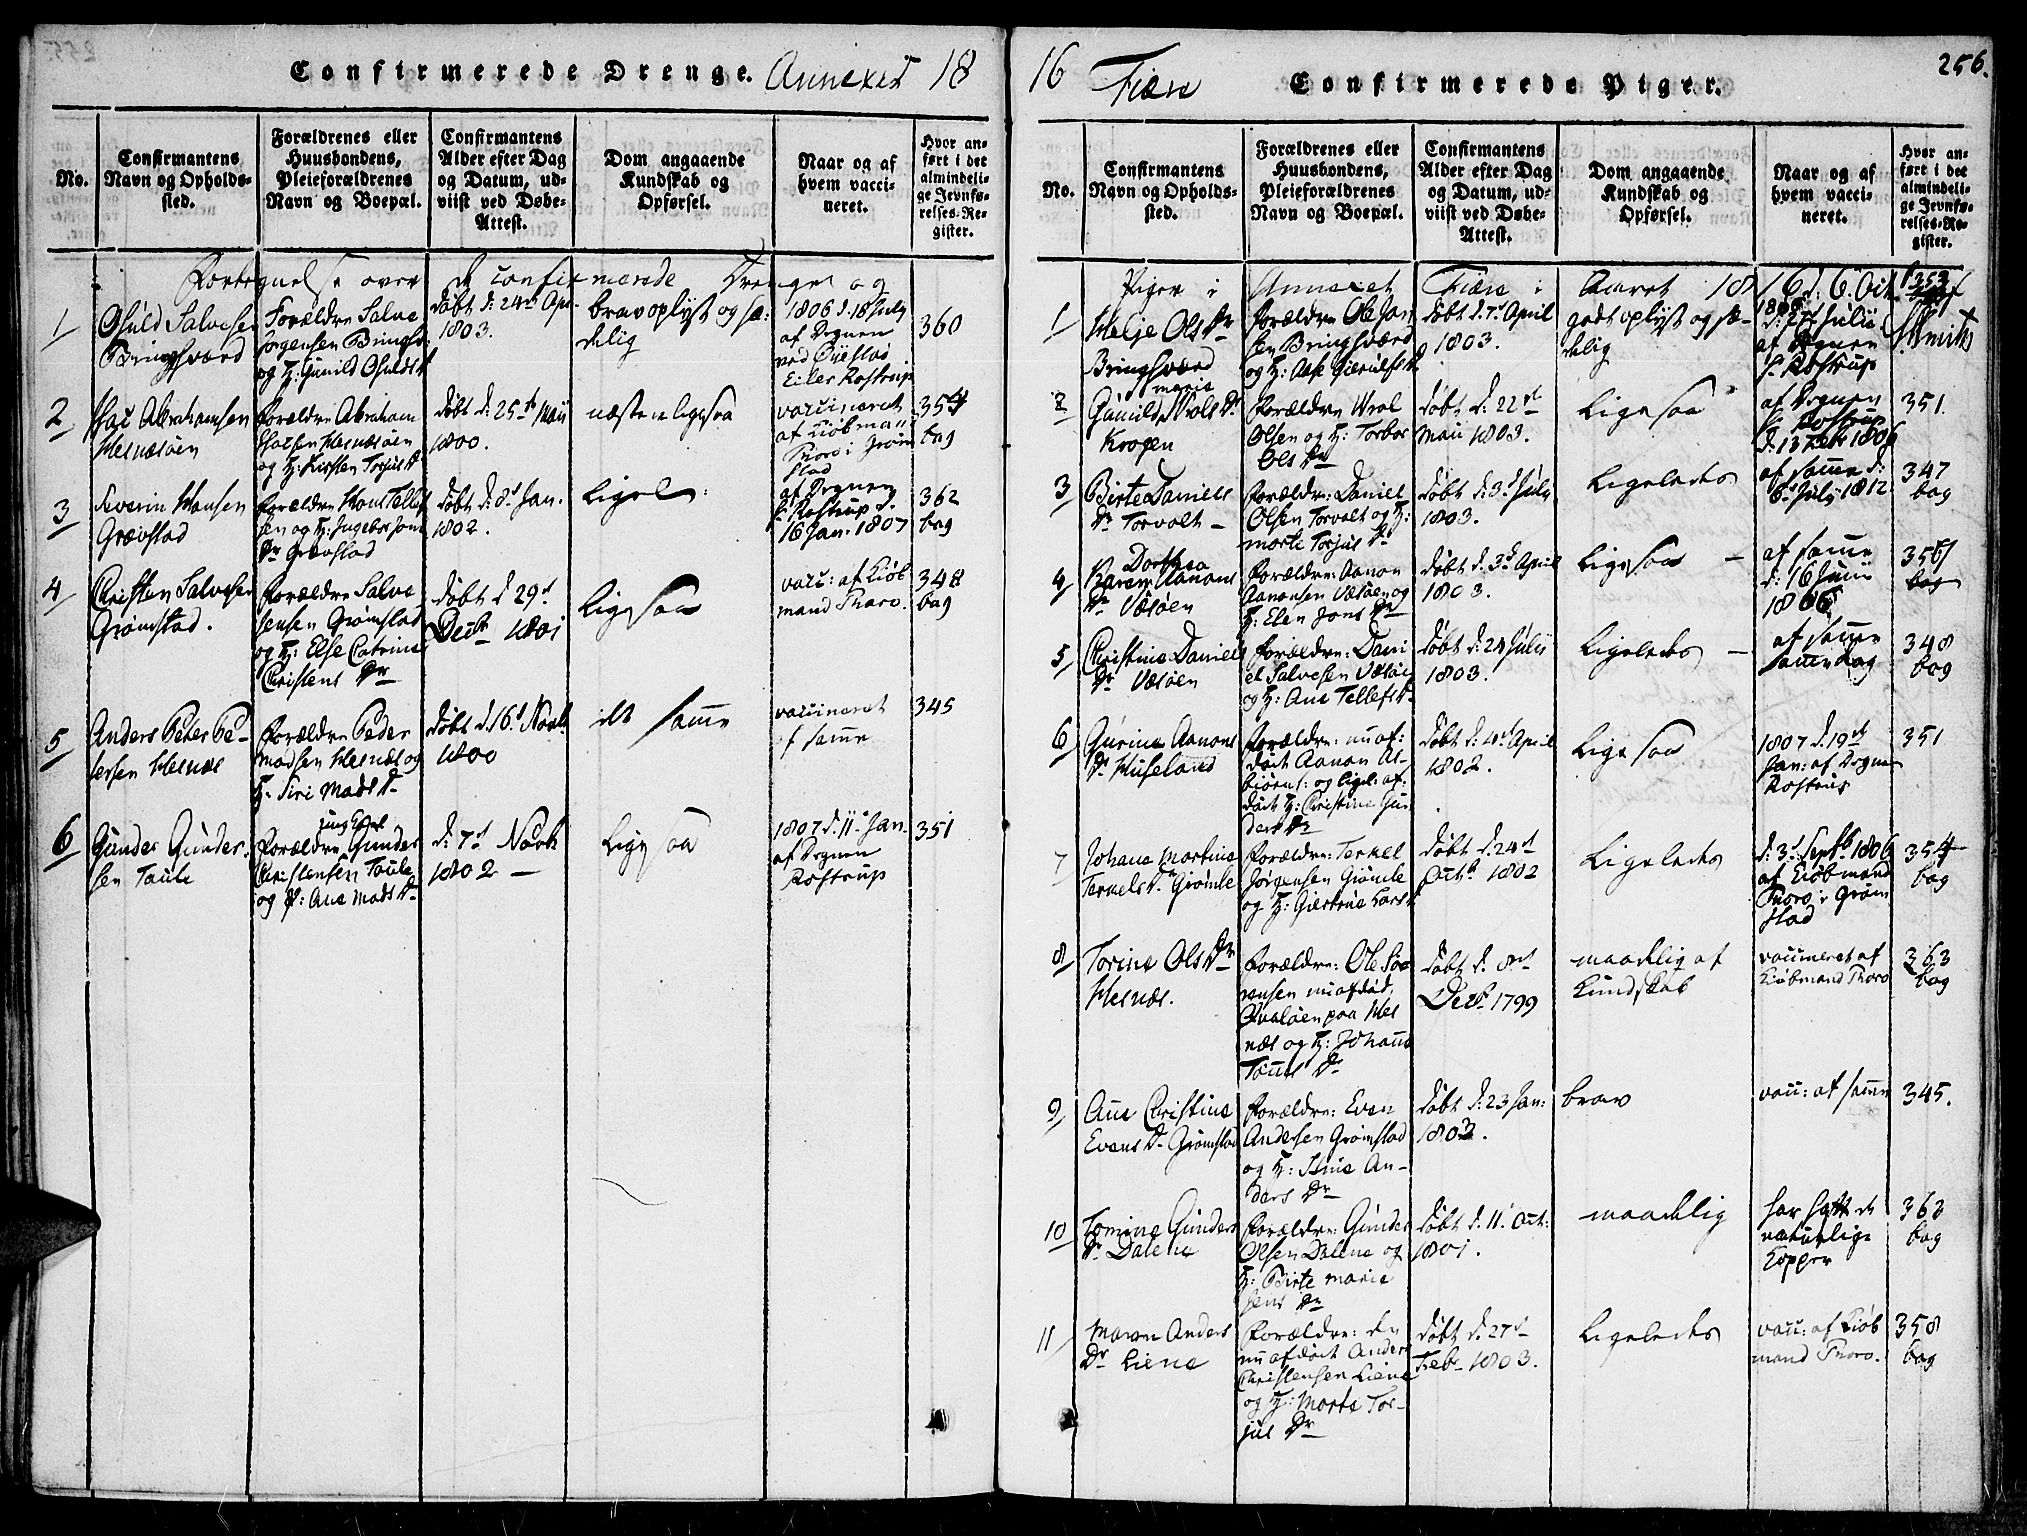 Confirmerede Drenge. Annexet 18
No.
Confirmantens
Navn og Opholds-
sted.
Forældrenes eller
Huusbondens,
Pleieforældrenes
Navn og Boepæl.
Confirmantens
Alder efter Dag
og Datum, ud-
viist ved Døbe-
Attest.
Dom angaaende
Kundskab og
Opførsel.
Naar og af
hvem vacci-
neret.
Hvor an-
ført i det
almindeli-
ge Jevnfø-
relses-Re-
gister.
Fortegnelse over de confirmerede Drenge og
1
Osuld Salvesen
Bringsværd
Forældre Salve
Jørgensen Brings-
og H: Gunild Osulds Dr
døbt d: 24d Apr.
1803.
brav oplyst og sæ-
delig
1806 d. 18 July
af Degnen
ved Øiestad
Eiler Rostrup
360
2
Isac Abrahamsen
Hesnæsøen
Forældre Abraham
Isacsen Hesnæsøen
og H: Kirsten Torjus Dr
døbt d: 25de Maii
1800.
næsten ligesaa
vaccineret
af Kiøbmand
Thoro i Grøm
stad
354
bag
3
Severin Hansen
Grævstad
Forældre Hans Tellef
sen og H: Ingebor Jens
Dr Grævstad
døbt d: 8d Jan.
1802.
Ligel:
af Degnen
E. Rostrup d.
16 Jan. 1807
362
bag
4
Christen Salvesen
Grømstad.
Forældre Salve
Jensen Grømstad
og H: Else Catrine
Christens Dr
døbt d 29d
Decbr 1801
Ligesaa
vacc: af Kiøb
mand Thoro.
348
bag
5
Anders Peter Pe-
tersen Hesnæs
Forældre Peder
Madsen Hesnæs og
H: Siri Mads Dr
døbt d. 16d Novb.
1800
det samme
vaccineret
af samme
345
6
Gunder Gunder-
sen Taule
Forældre Gunder
Christensen Taule
og H: Ane Mads Dr
d: 7d Novb
1802 —
Ligesaa
1807 d. 11d Jan.
af Degnen
Rostrup
351
16 Fiære Confirmerede Piger. 256.
No.
Confirmantens
Navn og Opholds-
sted.
Forældrenes eller
Huusbondens,
Pleieforældrenes
Navn og Boepæl.
Confirmantens
Alder efter Dag
og Datum, ud-
viist ved Døbe-
Attest.
Dom angaaende
Kundskab og
Opførsel.
Naar og af
hvem vacci-
neret.
Hvor an-
ført i det
almindeli-
ge Jevnfø-
relses-Re-
gister.
Piger i Annexet Fiære i Aaret 1816 d. 6. Oct. 353
1
Helje Ols Dr
Bringsværd
Forældre Ole Jan
sen Bringsværd
og H: Aase Gierulfs Dr
døbt d. 7d April
1803.
godt oplyst og sæ-
delig
af Degnen
E. Rostrup
2
marie
Gunild Wrols Dr
Krogen
Forældre Wrol
Olsen og H: Torbor
Ols Dr
døbt d: 22d
Maii 1803.
Ligesaa
af Degnen
E. Rostrup
d. 13 Febr 1806
351.
3
Birte Daniels
Dr Torvolt —
Forældre: Daniel
Olsen Torvolt og H:
morte Torjus Dr
døbt d: 3d July
1803.
Ligeledes
af samme d:
6d July 1812
347
bag
4
Dorthea
Karen Aanons
Dr Væsøen
Forældre: Aanon
Aanonsen Væsøen og
H: Elen Jons Dr
døbt d: 3d April
1803.
Ligesaa —
af samme
d: 16 Junii
1806
356
bag
5
Christine Daniels
Dr Væsøen
Forældre: Dani
el Salvesen Væsøe
og H: Ane Tellefs Dr
døbt d: 24 Julii
1803.
Ligeledes —
af samme
samme Dag
348
bag
6
Gurine Aanons
Dr Huseland
Forældre: nu af-
død Aanon As-
biørns: og ligel: af-
død H: Christine Gun
ders Dr
døbt d: 4d April
1802.
Ligesaa
1807 d. 19d
Jan: af Degnen
Rostrup
351
7
Johane Martine
Terkels Dr Grømle
Forældre: Terkel
Jørgensen Grømle
og H: Giertrue Lars Dr
døbt d: 24d
Octb. 1802
Ligeledes
d: 3d Septb 1806
af Kiøbmand
Thoro i Grøm
stad
354
bag
8
Torine Ols Dr
Hesnæs.
Forældre: Ole Sø-
rensen nu afdød,
Qvaløen paa Hes
næs og H: Johanne
Tønnes Dr
døbt d: 8d
Decb. 1799
maadelig af
Kundskab
vaccineret af
Kiøbmand Thoro
363
bag
9
Ane Christine
Evens Dr Grømstad
Forældre: Even
Andersen Grømstad
og H: Stine An-
ders Dr
døbt d: 23 Jan:
1803.
brav
vacc: af samme
345.
10
Tomine Gunders
Dr Dalene
Forældre: Gunder
Olsen Dalene og
H: Birte marie
Jens Dr
døbt d: 11d Oct:
1801.
maadelig
har havt de
naturlige
Kopper
363
bag
11
Maren Anders
Dr Liene
Forældre: den
nu afdød Anders
Christensen Liene
og H: Morte Tor-
jus Dr
døbt d: 27d
Feb– 1803.
Ligeledes
vacc: af Kiøb
mand Thoro.
358
bag